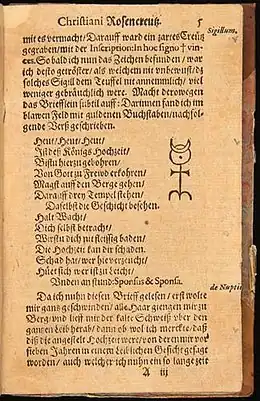 Christiani Rosencreutz. 5
mit es vermacht/ Darauff ward ein zartes Creutz Sigillum.
gegraben/ mit der Inscription: In hoc signo † vin-
ces. So bald ich nun das Zeichen befunden/ war
ich desto getröster/ als welchem nit vnbewust/ dz
solches Sigill dem Teuffel nit annemlich/ viel
weniger gebräuchlich were. Macht derowegen
das Briefflein subtil auff: Darinnen fand ich im
blawen Feld mit guldenen Buchstaben/ nachfol-
gende Verß geschrieben.
Heut/ Heut/ Heut/
Ist deß Königs Hochzeit/
Bistu hierzu geboren/
Von Gott zu Frewd erkohren/
Magst auff den Berge gehen/
Darauff drey Tempel stehen/
Daselbst die Geschicht besehen.
Halt Wacht/
Dich selbst betracht/
Wirstu dich nit fleissig baden/
Die Hochzeit kan dir schaden.
Schad hat/ wer hie verzeucht/
Hüet sich wer ist zu leicht/
Unden an stund: Sponsus & Sponsa. de Nuptiis
Da ich nuhn diesen Brieff gelesen/ erst wolte
mir ganz geschwinden/ alle Haar giengen mir zu
Berg/ vnd lieff mir der kalte Schweiß vber den
ganzen Leib herab/ dann ob wol ich merckte/ daß
diß die angestelt Hochzeit were/ von deren mir vor
sieben Jahren in einem leiblichen Gesicht gesagt
worden/ auch welcher ich nuhn ein so lange zeit
A iij